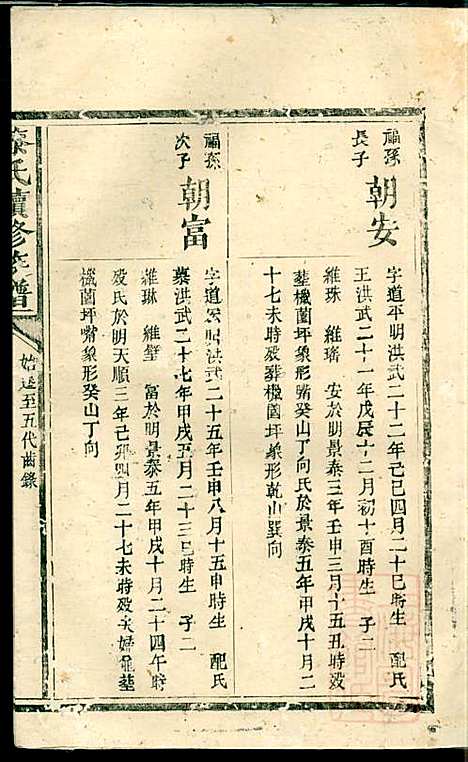 福孫
長子
朝安
字道平明洪武二十二年己巳四月二十巳時生 配氏
王洪武二十一年戊辰十二月初十酉時生 子二
維珠 維璿 安於明景泰三年壬申三月十五丑時殁
葬檝菌坪象形嘴癸山丁向氏於景泰五年甲戌十月二
十七未時殁葬檝菌坪象形乾山巽向
福孫
次子
朝富
字道 明洪武二十五年壬申八月十五申時生 配氏
洪武二十七年甲戌五月二十三巳時生 子二
維琳 維璧 富於明景泰五年甲戌十月二十四午時
殁氏於明天順三年己卯四月二十七未時殁夫婦 葬
檝菌坪嘴象形癸山丁向
氏續修族譜
始遷至五代齒錄